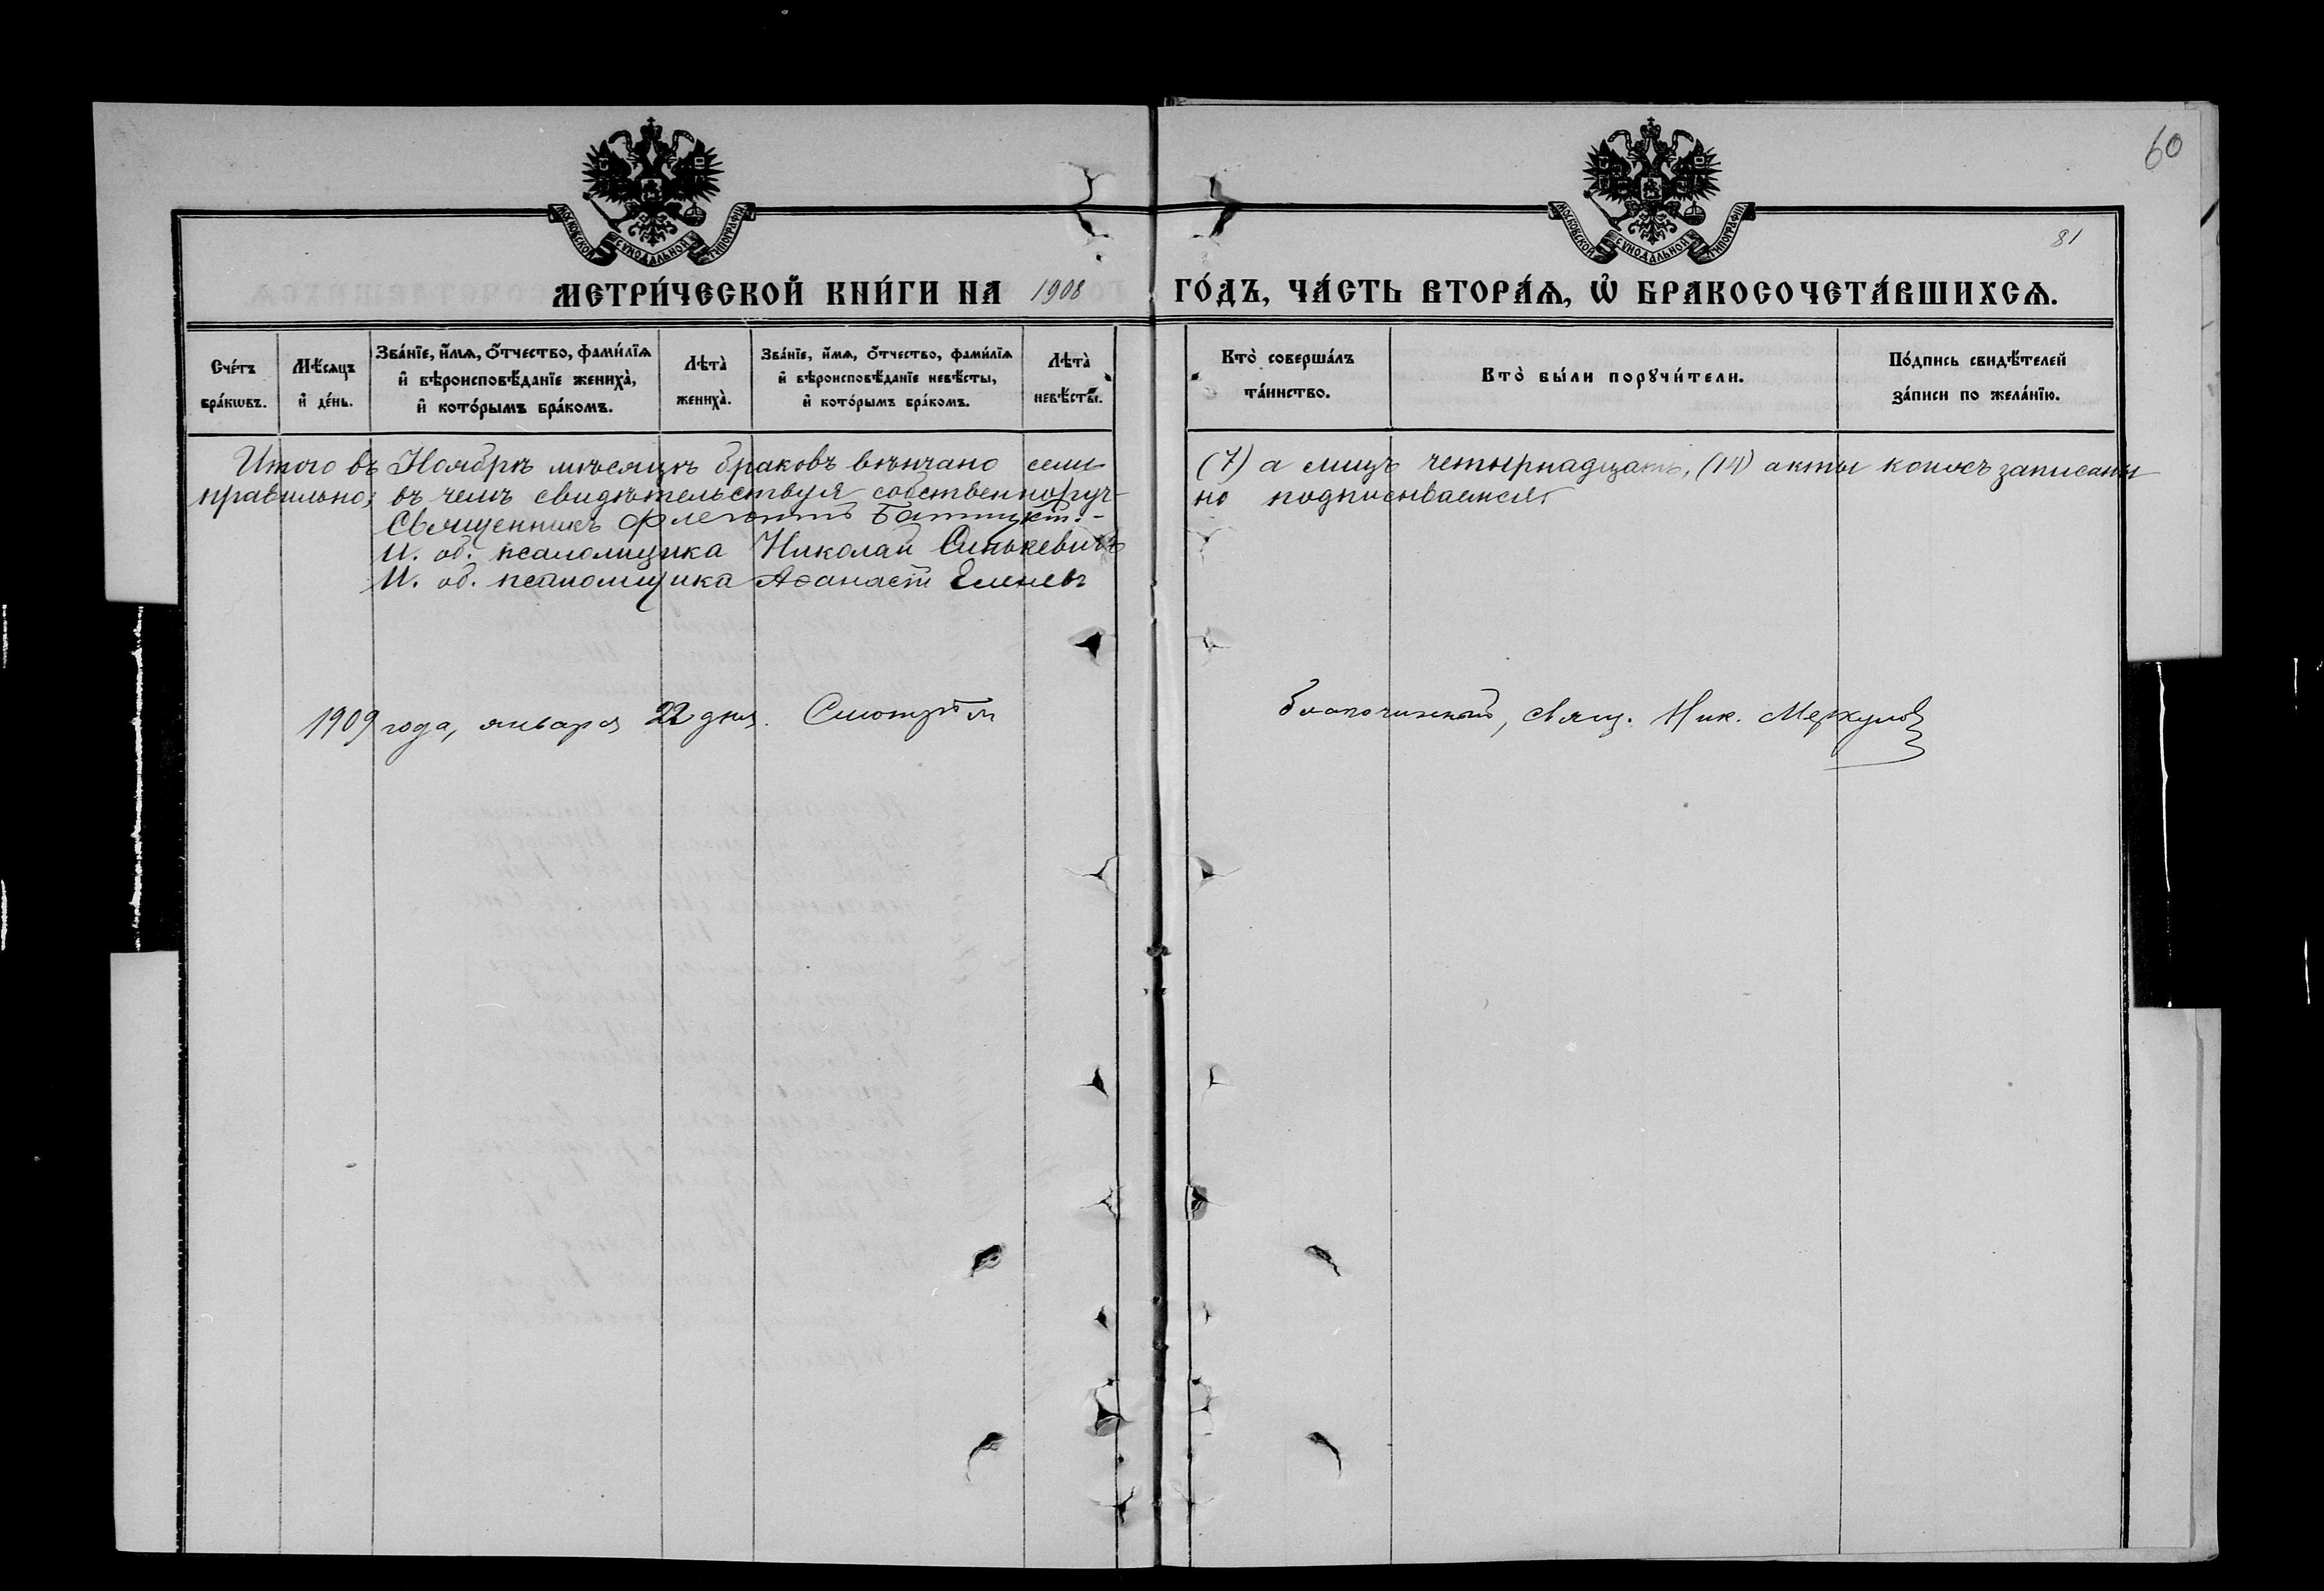 60
81
МОСКОВСКОЙ СѴНОДАЛЬНОЙ ТИПОГРАФІИ
МОСКОВСКОЙ СѴНОДАЛЬНОЙ ТИПОГРАФІИ
МЕТРИ́ЧЕСКОЙ КНИ́ГИ НА 1908 ГО́ДЪ, ЧА́СТЬ ВТОРА́Ѧ, Ѽ БРАКОСОЧЕТА́ВШИХСѦ.
Сче́тъ бра́кѡвъ.
Мѣ́сяцъ и҆ де́нь.
Зва́нїе, и҆́мѧ, ѻ҆́тчество, фами́лїѧ и҆ вѣроисповѣ́данїе жениха̀, и҆ кото́рымъ бра́комъ.
Лѣта̀ жениха̀.
Зва́нїе, и҆́мѧ, ѻ҆́тчество, фами́лїѧ и҆ вѣроисповѣ́данїе невѣ́сты, и҆ кото́рымъ бра́комъ.
Лѣта̀ невѣ́сты.
Кто̀ соверша́лъ та́инство.
Кто̀ бы́ли порꙋчи́тели.
По́дпись свидѣ́телей за́писи по жела́нїю.
Итого въ Ноябрѣ мѣсяцѣ браковъ вѣнчано семь (7) а лицъ четырнадцать, (14) акты коихъ записаны
правильно, въ чемъ свидѣтельствуя собственноруч- но подписываемся.
Священникъ Флегонтъ
И. об. псаломщика Николай Синькевичъ
И. об. псаломщика Аѳанасій
1909 года, января 22 дня. Смотрѣлъ Благочинный, свящ. Ник. Меркуловъ